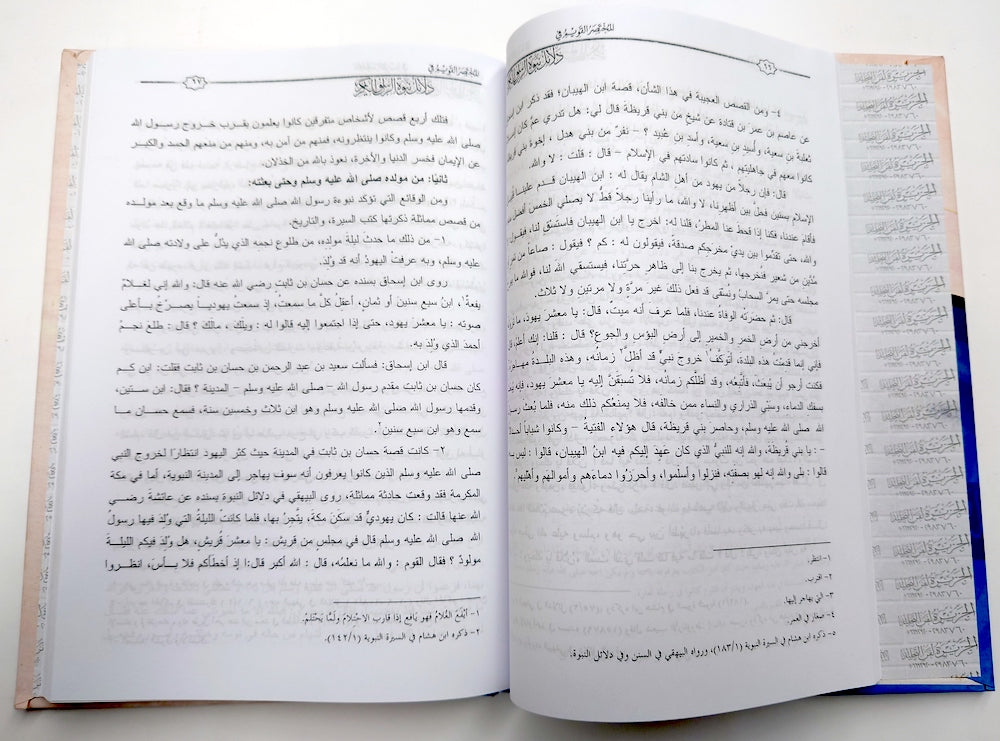 المختصر القويم في
دلائل نبوة الرسول الكريم
٦٦
٤- ومن القصص العجيبة في هذا الشأن، قصة ابن الهيبان؛ فقد ذكر ابن
عن عاصم بن عمر بن قتادة عن شيخ من بني قريظة قال لي: هل تدري عمَّ كان
ثعلبة بن سعية، وأُسيد بن سعية، وأسد بن عُبيد ؟ - نفرٌ من بني هدل ، إخوة بني
كانوا معهم في جاهليتهم ، ثم كانوا سادتهم في الإسلام – قال : قلت : لا والله.
قال: فإن رجلاً من يهود من أهل الشام يقال له : ابن الهيبان قدم علينا
الإسلام بسنين فحلَّ بين أظهرنا، لا والله، ما رأينا رجلاً قطُّ لا يصلي الخمس أفضل
فأقام عندنا، فكنا إذا قحط عنا المطرُ، قلنا له: اخرج يا ابن الهيبان فاستسقِ لنا، فيقول
والله، حتى تقدِّموا بين يديْ مخرجكم صدقة، فيقولون له : كم ؟ فيقول : صاعاً من
مُدَّين من شعير فنُخرجها، ثم يخرج بنا إلى ظاهر حرَّتنا، فيستسقي الله لنا، فوالله ما
مجلسه حتى يمرَّ السحابُ ونُسقى قد فعل ذلك غير مرَّة ولا مرتين ولا ثلاث.
قال: ثم حضرتْه الوفاةُ عندنا، فلما عرف أنه ميتٌ، قال: يا معشر يهود، ما
أخرجني من أرض الخمر والخمير إلى أرض البؤس والجوع؟ قال : قلنا: إنك أعلم
فإني إنما قدمت هذه البلدة، أتوكَّفُ١ خروج نبيٍّ قد أظلَّ٢ زمانُه، وهذه البلدة
فكنت أرجو أن يُبعث، فأتَّبعه، وقد أظلَّكم زمانُه، فلا تُسبَقنَّ إليه يا معشر يهود، فإنه
بسفك الدماء، وسبْي الذراري والنساء ممن خالفه، فلا يمنعْكم ذلك منه، فلما بُعث
صلى الله عليه وسلم، وحاصر بني قريظة، قال هؤلاء الفتيةُ – وكانوا شباباً
-: يا بني قريظة، والله إنه للنبيُّ الذي كان عَهِدَ إليكم فيه ابنُ الهيبان، قالوا : ليس
قالوا : بلى والله إنه لهو بصفته، فنزلوا وأسلموا، وأحرزوا دماءهم وأموالهم وأهليهم
١- انتظر.
٢- اقترب.
٣- التي يهاجر إليها.
٤- صغار في العمر.
٥- ذكره ابن هشام في السيرة النبوية (١٨٣/١)، ورواه البيهقي في السنن وفي دلائل النبوة.
المختصر القويم في
دلائل نبوة الرسول الكريم
٦٧
فتلك أربع قصص لأشخاص متفرقين كانوا يعلمون بقرب خروج رسول الله
صلى الله عليه وسلم وكانوا ينتظرونه، فمنهم من آمن به، ومنهم من منعهم الحسد والكبر
عن الإيمان فخسر الدنيا والآخرة، نعوذ بالله من الخذلان.
ثانيًا: من مولده صلى الله عليه وسلم وحتى بعثته:
ومن الوقائع التي تؤكد نبوءة رسول الله صلى الله عليه وسلم ما وقع بعد مولده
من قصص مماثلة ذكرتها كتب السيرة، والتاريخ.
١- من ذلك ما حدث ليلة مولده، من طلوع نجمه الذي يدُلُّ على ولادته صلى الله
عليه وسلم، وبه عرفت اليهودُ أنه قد وُلِدَ.
روى ابن إسحاق بسنده عن حسان بن ثابت رضي الله عنه قال: والله إني لغلامٌ
يفعةٌ١، ابنُ سبع سنين أو ثمان، أعقلُ كلَّ ما سمعتُ، إذ سمعتُ يهودياً يصرُخُ بأعلى
صوته : يا معشرَ يهود، حتى إذا اجتمعوا إليه قالوا له : ويلكَ، مالك ؟ قال : طلعَ نجمُ
أحمدَ الذي وُلِدَ به.
قال ابن إسحاق: فسألت سعيد بن عبد الرحمن بن حسان بن ثابت فقلت: ابن كم
كان حسان بن ثابت مقدم رسول الله – صلى الله عليه وسلم – المدينة ؟ فقال: ابن ستين،
وقدمها رسول الله صلى الله عليه وسلم وهو ابن ثلاث وخمسين سنة، فسمع حسان ما
سمع وهو ابن سبع سنين٢.
٢- كانت قصة حسان بن ثابت في المدينة حيث كثر اليهود انتظارًا لخروج النبي
صلى الله عليه وسلم الذين كانوا يعرفون أنه سوف يهاجر إلى المدينة النبوية، أما في مكة
المكرمة فقد وقعت حادثة مماثلة، روى البيهقي في دلائل النبوة بسنده عن عائشة رضي
الله عنها قالت : كان يهوديٌّ قد سكَنَ مكةَ، يتَّجِرُ بها، فلما كانت الليلةُ التي وُلِدَ فيها رسولُ
الله صلى الله عليه وسلم قال في مجلس من قريش : يا معشرَ قُريش، هل وُلِدَ فيكم الليلةَ
مولودٌ ؟ فقال القوم : والله ما نعلمُه، قال : الله أكبر قال:ا إذ أخطأكم فلا بأسَ، انظروا
١- أيْفَعَ الغُلامُ فهو يَافِع إذا قارب الاحتِلامَ ولَمَّا يَحْتَلِمْ.
٢- ذكره ابن هشام في السيرة النبوية (١٤٢/١).